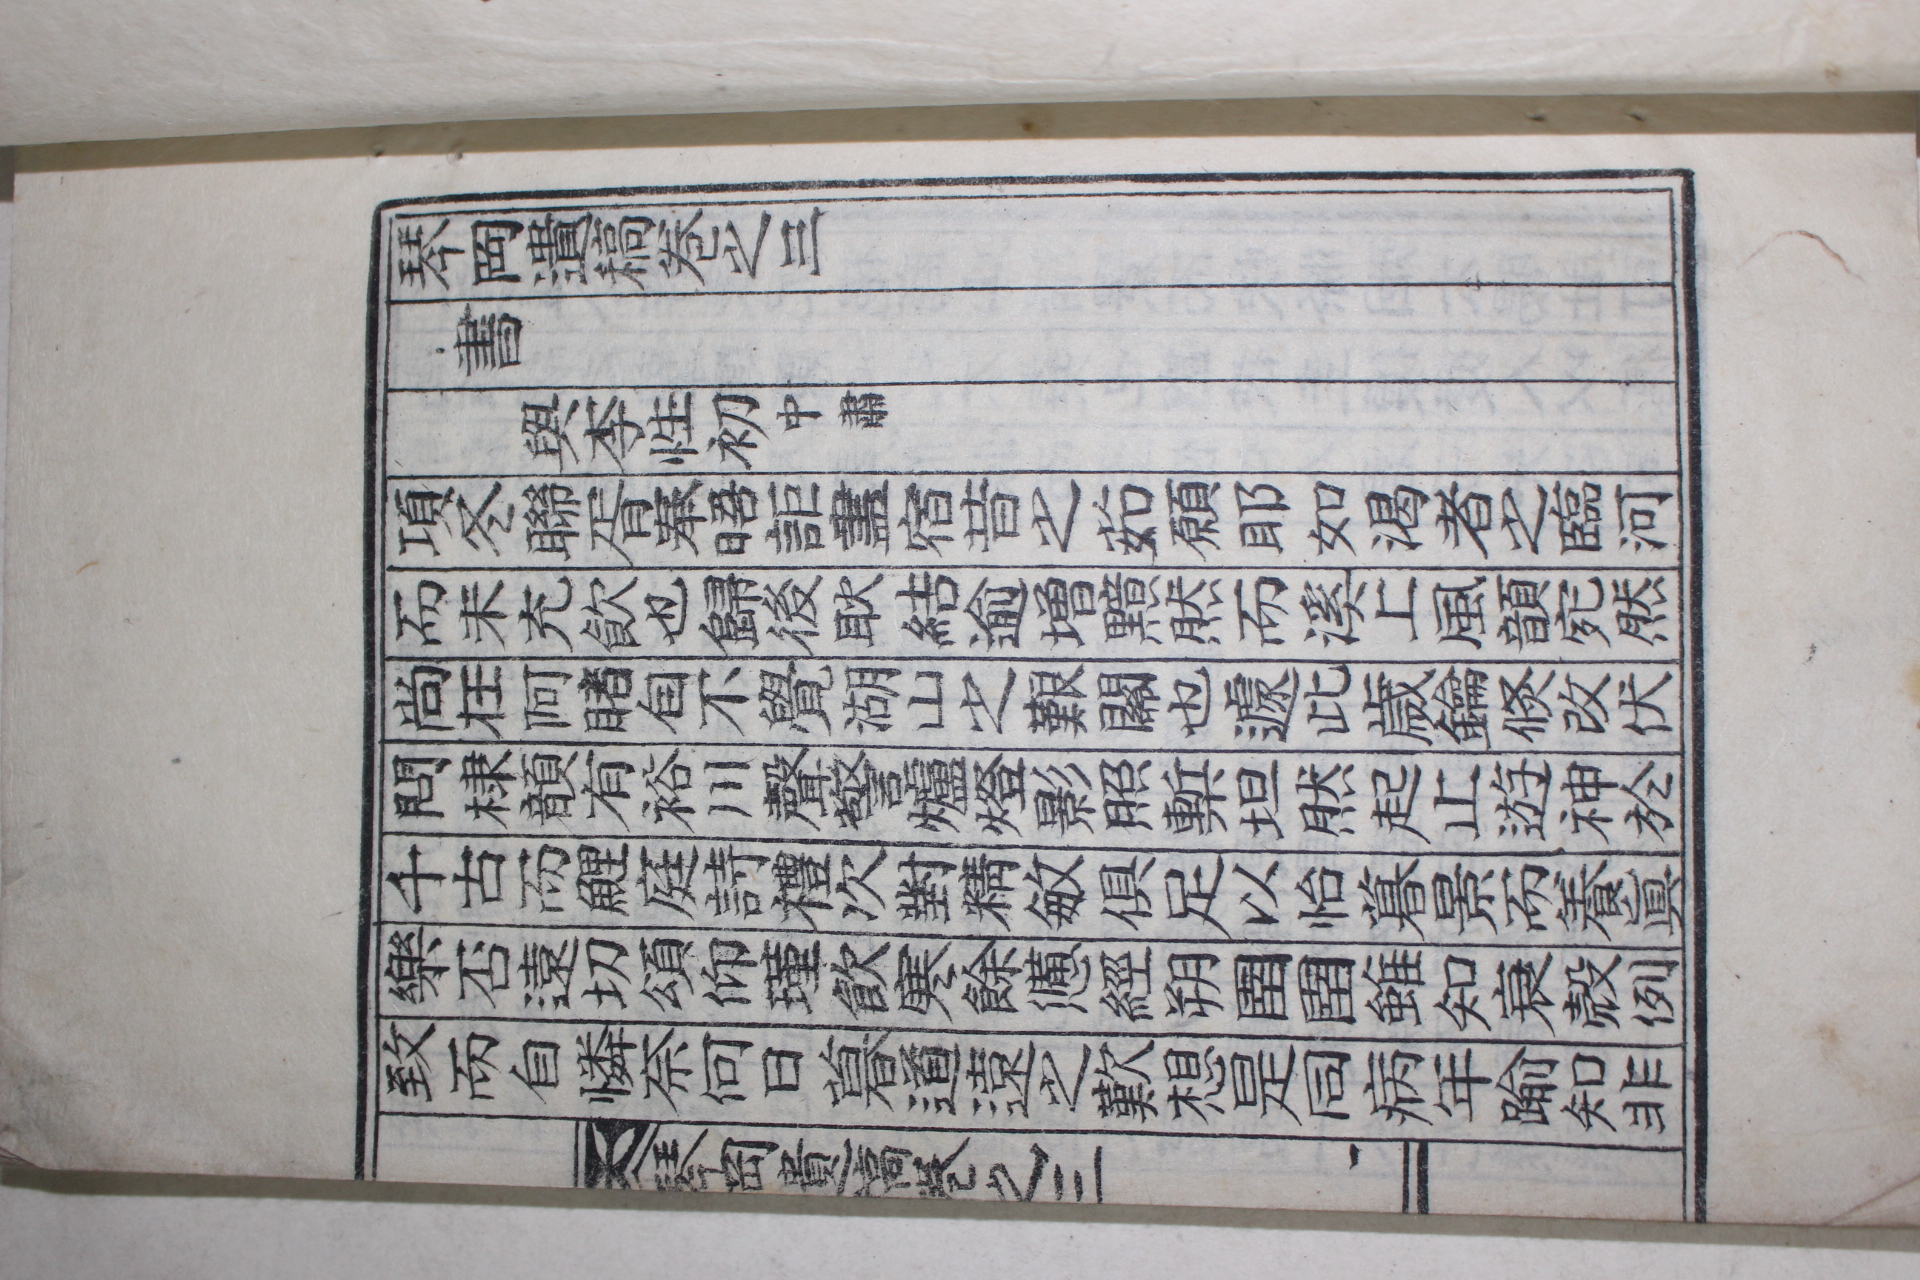 琴岡遺稿卷之三
書
與李性初 中肅
項冬聯胥奉晤詎盡宿昔之茹願耶如渴者之臨河
而未充飮也歸後耿結逾增黯然而溪上風韻宛然
尙在阿睹自不覺湖山之艱關也遽此歲鑰倐改伏
問棣韻有裕川聲警爐燈影照槧坦然起止遊神於
千古而鯉庭詩禮次對精敏俱足以怡暮景而養眞
樂否遠切頌仰瑾飮寒餘憊經朔圉圉雖知衰殼例
致而自憐奈何日暮道遠之歎想是同病年踰知非
琴岡遺稿卷之三
一